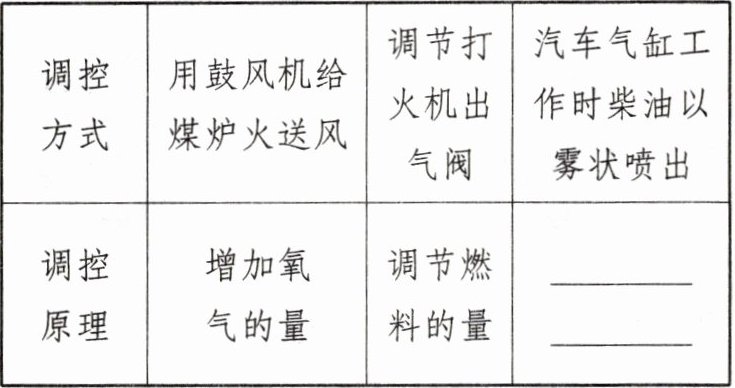 调控
方式
用鼓风机给
煤炉火送风
调节打
火机出
气阀
汽车气缸工
作时柴油以
雾状喷出
调控
原理
增加氧
气的量
调节燃
料的量